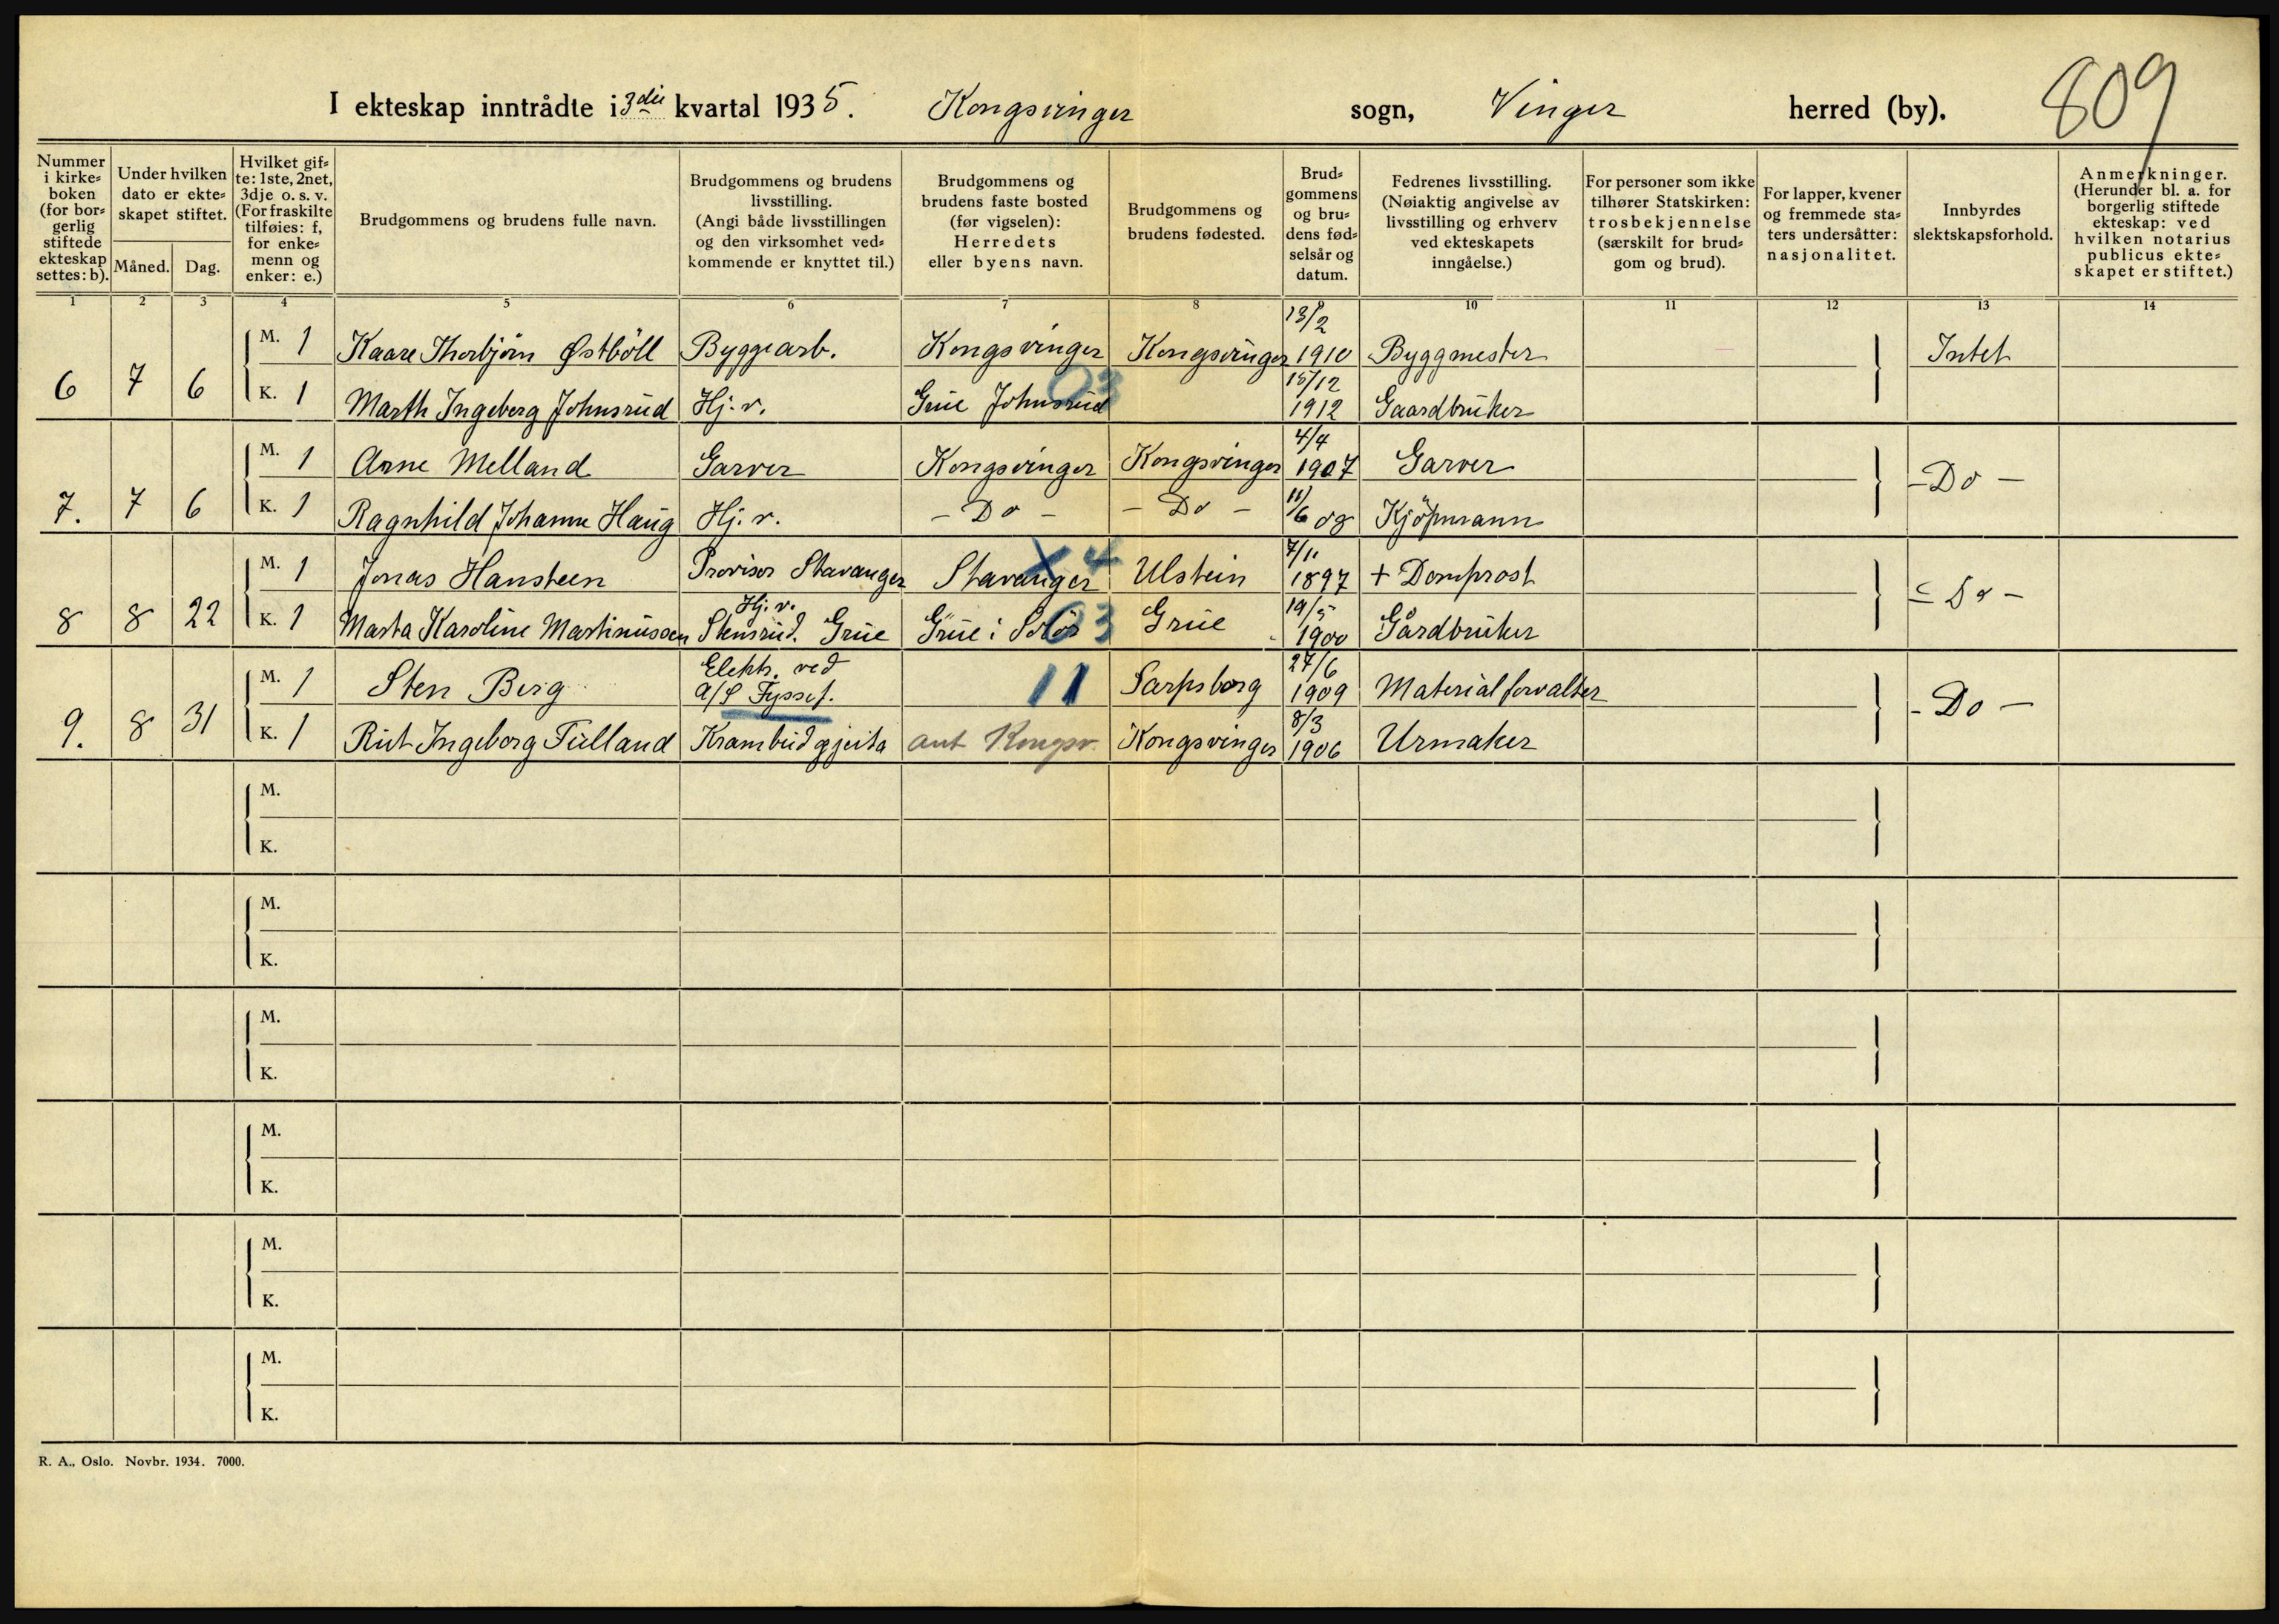 809
I ekteskap inntrådte i 3die kvartal 1935. Kongsvinger sogn, Vinger herred (by).
Nummer i kirke= boken (for bor= gerlig stiftede ekteskap settes: b).
Under hvilken dato er ekte= skapet stiftet.
Måned. Dag.
Hvilket gif= te: 1ste, 2net, 3dje o. s. v. (For fraskilte tilføies: f, for enke= menn og enker: e.)
Brudgommens og brudens fulle navn.
Brudgommens og brudens livsstilling. (Angi både livsstillingen og den virksomhet ved= kommende er knyttet til.)
Brudgommens og brudens faste bosted (før vigselen): Herredets eller byens navn.
Brudgommens og brudens fødested.
Brud= gommens og bru= dens fød= selsår og datum.
Fedrenes livsstilling. (Nøiaktig angivelse av livsstilling og erhverv ved ekteskapets inngåelse.)
For personer som ikke tilhører Statskirken: trosbekjennelse (særskilt for brud= gom og brud).
For lapper, kvener og fremmede sta= ters undersåtter: nasjonalitet.
Innbyrdes slektskapsforhold.
Anmerkninger. (Herunder bl. a. for borgerlig stiftede ekteskap: ved hvilken notarius publicus ekte= skapet er stiftet.)
1 2 3 4 5 6 7 8 9 10 11 12 13 14
6 7 6 M. 1 Kaare Thorbjörn Østböll Byggearb. Kongsvinger Kongsvinger 13/2 1910 Byggmester Intet
K. 1 Marth Ingeborg Johnsrud Hj. v. Grue Johnsrud 03 15/12 1912 Gaardbruker
7. 7 6 M. 1 Arne Melland Garver Kongsvinger Kongsvinger 4/4 1907 Garver - Do -
K. 1 Ragnhild Johanne Haug Hj. v. - Do - - Do - 11/6 08 Kjöpmann
8 8 22 M. 1 Jonas Hansteen Provisor Stavanger Stavanger X 4 Ulstein 7/11 1897 + Domprost - Do -
K. 1 Marta Karoline Martinussen Hj. v. Stensrud. Grue Grue i Solør 03 Grue 19/5 1900 Gårdbruker
9. 8 31 M. 1 Sten Berg Elektr. ved A/S Fyssef. 11 Sarpsborg 27/6 1909 Materialforvalter - Do -
K. 1 Rut Ingeborg Tulland Krambudgjeita ant Kongsv. Kongsvinger 8/3 1906 Urmaker
M.
K.
M.
K.
M.
K.
M.
K.
M.
K.
M.
K.
R. A., Oslo. Novbr. 1934. 7000.